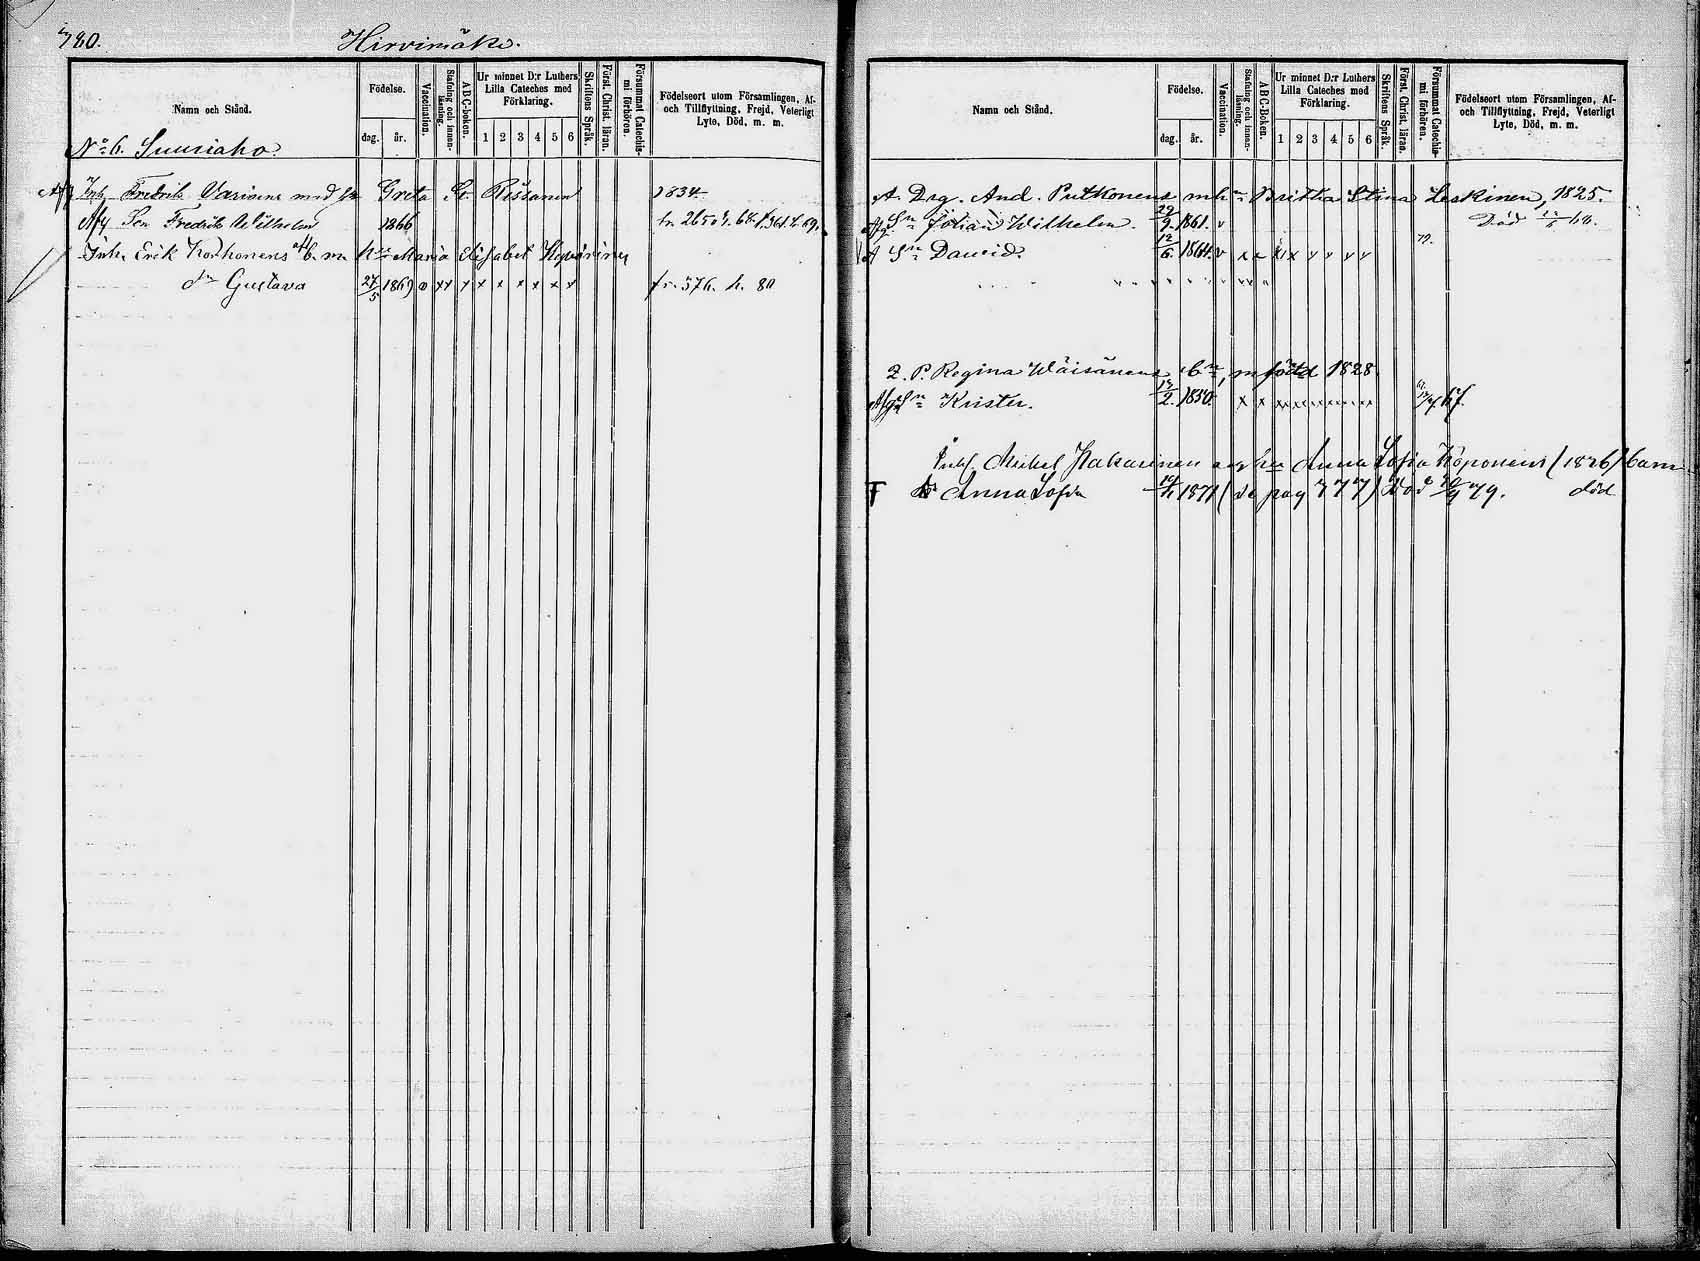 780.
Hirvimäki.
Namn och Stånd.
Födelse.
dag. år.
Vaccination.
Stafning och innanläsning.
ABC-Boken.
Ur minnet D:r Luthers Lilla Cateches med Förklaring.
1 2 3 4 5 6
Skriftens Språk.
Först. Christ. läran.
Försummat Catechismi förhören.
Födelseort utom Församlingen, Af- och Tillflyttning, Frejd, Veterligt Lyte, Död, m. m.
No 6. Suuriaho.
Inh. Fredrik med Greta Rissanen 1834
Afg Son Fredrik Wilhelm 1866
Inh. Erik Korhonens b. m. hu Maria Elisabet
dr Gustava 27/5 1869 v xx x x x x x x x fr. 576. h. 80
Namn och Stånd.
Födelse.
dag. år.
Vaccination.
Stafning och innanläsning.
ABC-Boken.
Ur minnet D:r Luthers Lilla Cateches med Förklaring.
1 2 3 4 5 6
Skriftens Språk.
Först. Christ. läran.
Försummat Catechismi förhören.
Födelseort utom Församlingen, Af- och Tillflyttning, Frejd, Veterligt Lyte, Död, m. m.
A. Drg. And. Putkonens m hu Britha Stina Leskinen, 1825.
Sn Johan Wilhelm. 29/9. 1861. v Död 68.
A Sn David. 12/6. 1864. v x x x x y y y y
2. P. Regina Wäisänens bn, m född 1828
Sn Krister. 13/2. 1850. x x 67.
Inh. Michel Hakarinen och hu Anna Sofia Koponens (1826) barn
F Dr Anna Sofia 1871 (se pag 777) död 79. död